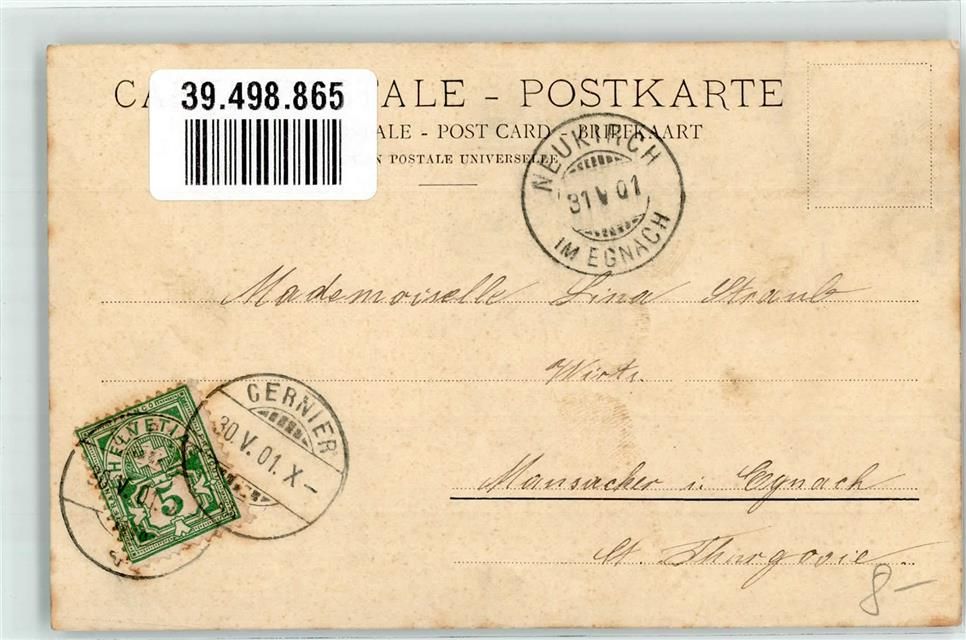 39.498.865
CA TALE - POSTKARTE
ALE - POST CARD - BRIEFKAART
N POSTALE UNIVERSELLE
NEUKIRCH
31 V 01
IM EGNACH
Mademoiselle Lina Straub
Wirts.
CERNIER
30.V.01.X-
HELVETIA
5
30.V.01
Mansacker i. Egnach
Ct. Thurgovie
8-